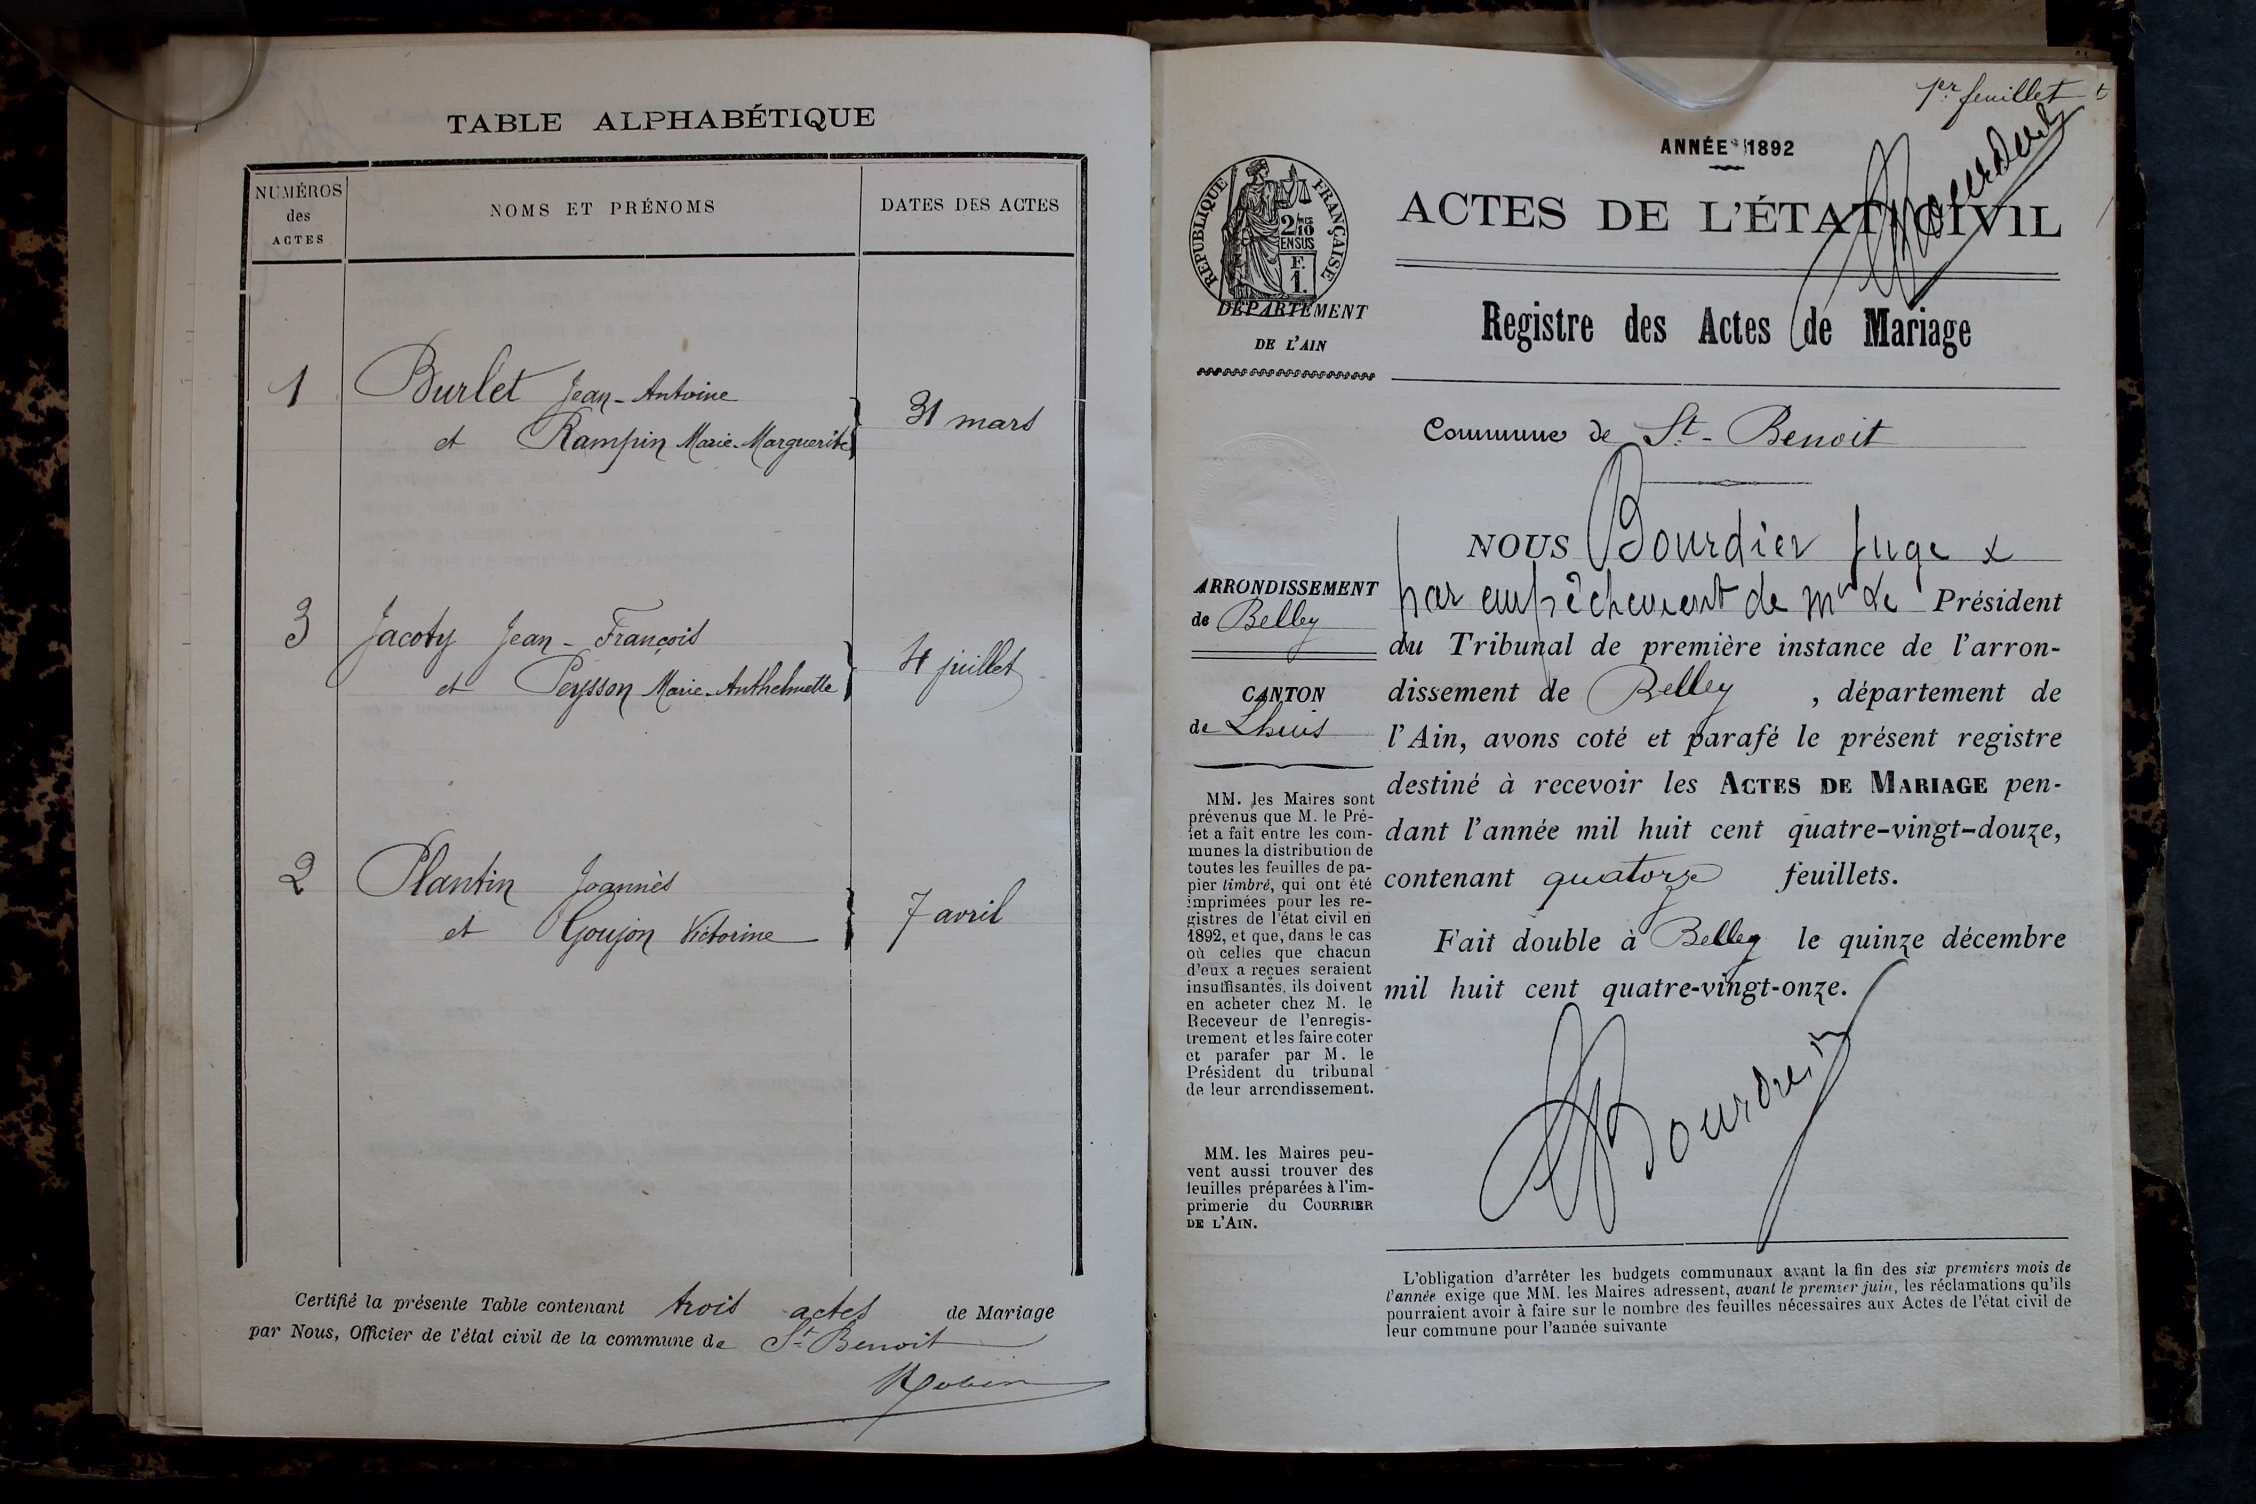 TABLE ALPHABÉTIQUE
NUMÉROS
des
ACTES
NOMS ET PRÉNOMS
DATES DES ACTES
1
Burlet Jean-Antoine
et Rampin Marie-Marguerite
31 mars
3
Jacoty Jean-François
et Peysson Marie-Anthelmette
4 juillet
2
Plantin Joannès
et Goujon Victorine
7 avril
Certifié la présente Table contenant trois actes de Mariage
par Nous, Officier de l'état civil de la commune de St Benoit
Robin
1er feuillet
ANNÉE 1892
ACTES DE L'ÉTAT CIVIL
RÉPUBLIQUE FRANÇAISE
2/10
EN SUS
F.
1.
DÉPARTEMENT
DE L'AIN
Registre des Actes de Mariage
Commune de St-Benoit
ARRONDISSEMENT
de Belley
CANTON
de Lhuis
MM. les Maires sont
prévenus que M. le Pré-
fet a fait entre les com-
munes la distribution de
toutes les feuilles de pa-
pier timbré, qui ont été
imprimées pour les re-
gistres de l'état civil en
1892, et que, dans le cas
où celles que chacun
d'eux a reçues seraient
insuffisantes, ils doivent
en acheter chez M. le
Receveur de l'enregis-
trement et les faire coter
et parafer par M. le
Président du tribunal
de leur arrondissement.
MM. les Maires peu-
vent aussi trouver des
feuilles préparées à l'im-
primerie du COURRIER
DE L'AIN.
NOUS Bourdier juge
par empêchement de Mr Le Président
du Tribunal de première instance de l'arron-
dissement de Belley, département de
l'Ain, avons coté et parafé le présent registre
destiné à recevoir les ACTES DE MARIAGE pen-
dant l'année mil huit cent quatre-vingt-douze,
contenant quatorze feuillets.
Fait double à Belley le quinze décembre
mil huit cent quatre-vingt-onze.
Bourdier
L'obligation d'arrêter les budgets communaux avant la fin des six premiers mois de
l'année exige que MM. les Maires adressent, avant le premier juin, les réclamations qu'ils
pourraient avoir à faire sur le nombre des feuilles nécessaires aux Actes de l'état civil de
leur commune pour l'année suivante